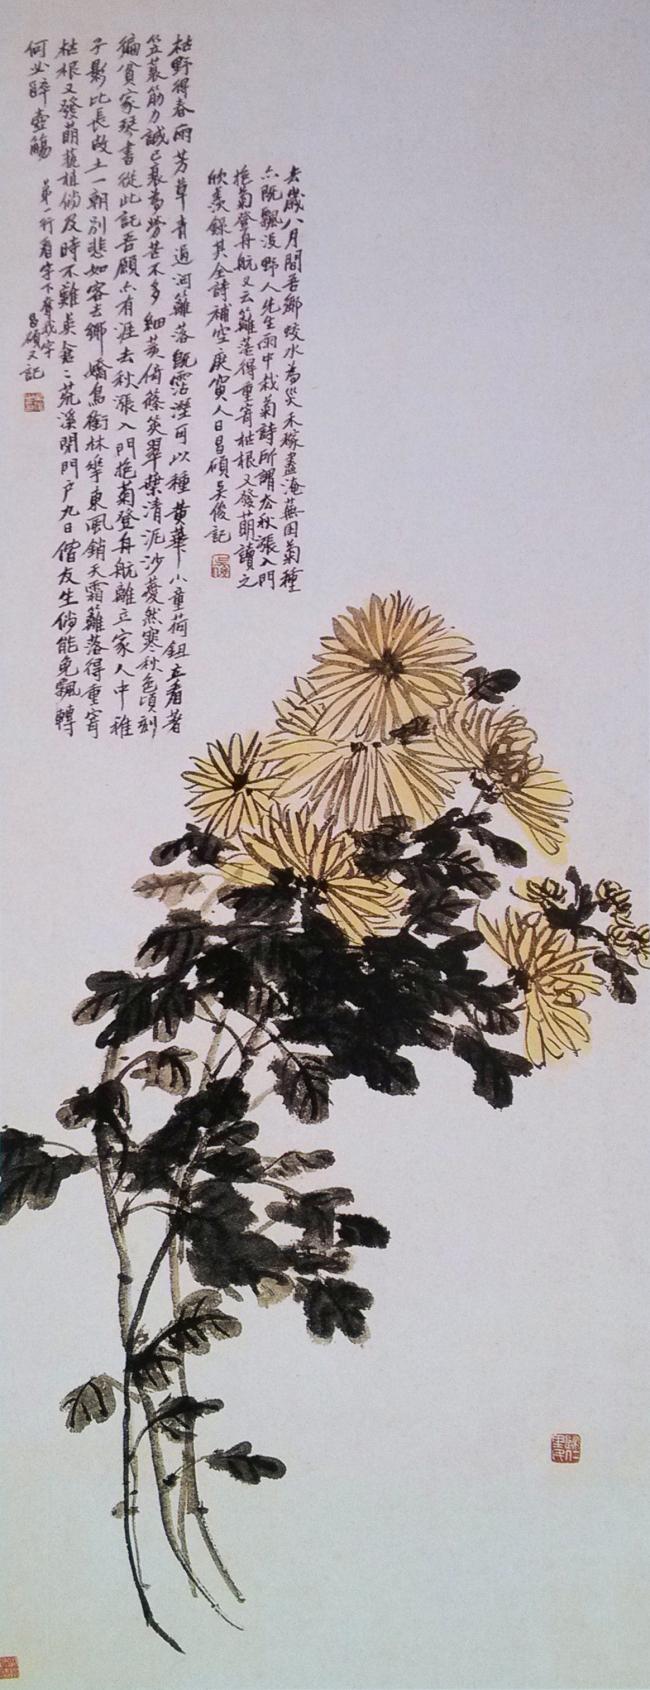 去歲八月間吾鄉蛟水為災禾稼盡淹蕪園菊種
亦既飄沒野人先生雨中栽菊詩所謂去秋漲入門
抱菊登舟航又云籬落得重寄枯根又發萌讀之
欣羨錄其全詩補空庚寅人日昌碩吳俊記
枯野得春雨芳草青過河籬落既霑溼可以種黃華小童荷鉏立看著
笠蓑筋力誠已衰為勞苦不多細莖倚篠筴翠葉清泥沙蔓然寒秋色頃刻
徧貧家琴書從此託吾願亦有涯去秋漲入門抱菊登舟航離立家人中稚
子影比長故土一朝別悲如客去鄉嬌鳥銜林華東風銷天霜籬落得重寄
枯根又發萌蓺植倘及時不難矣〻荒溪閉門戶九日偕友生倘能免飄轉
何必醉壺觴
第一行看字下奪我字
昌碩又記